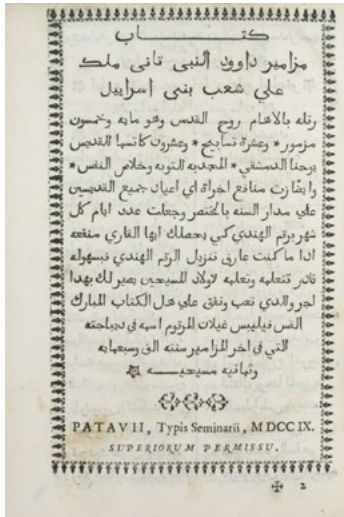 كتاب
مزامير داوود النبى تانى ملك
علي شعب بنى اسراييل
رتله بالالهام روح القدس وهو مايه وخمسون
مزمور * وعشرة تسابيح * وعشرون كاتسما للقديس
يوحنا الدمشقي * المجديه للتوبه وخلاص النفس *
وايضا زت منافع اخراة اي اعياد جميع القديسين
علي مدار السنه بالختصر وجعلت عدد ايام كل
شهر برقم الهندي كي يحصلك ايها القاري منفعه
اذا ما كنت عارفى تنزيل الرقم الهندي فبسهوله
قادر تتعلمه وتعلمه لاولاد المسيحين يصير لك بهدا
اجر والدي تعب ونفق علي هدا الكتاب المبارك
القس فيليبس غيلان المرقوم اسمه في ديباجته
التي في اخر المزامير سنته الف وسبعمايه
وتمانيه مسيحيه
PATAVII, Typis Seminarii, MDCCIX.
SUPERIORUM PERMISSU.
✠ 2